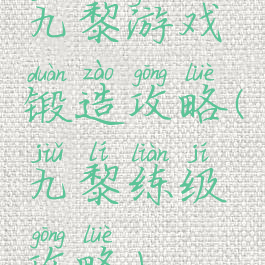 九黎游戏
duàn zào gōng lüè
锻造攻略(
jiǔ lí liàn jí
九黎练级
gōng lüè
攻略)